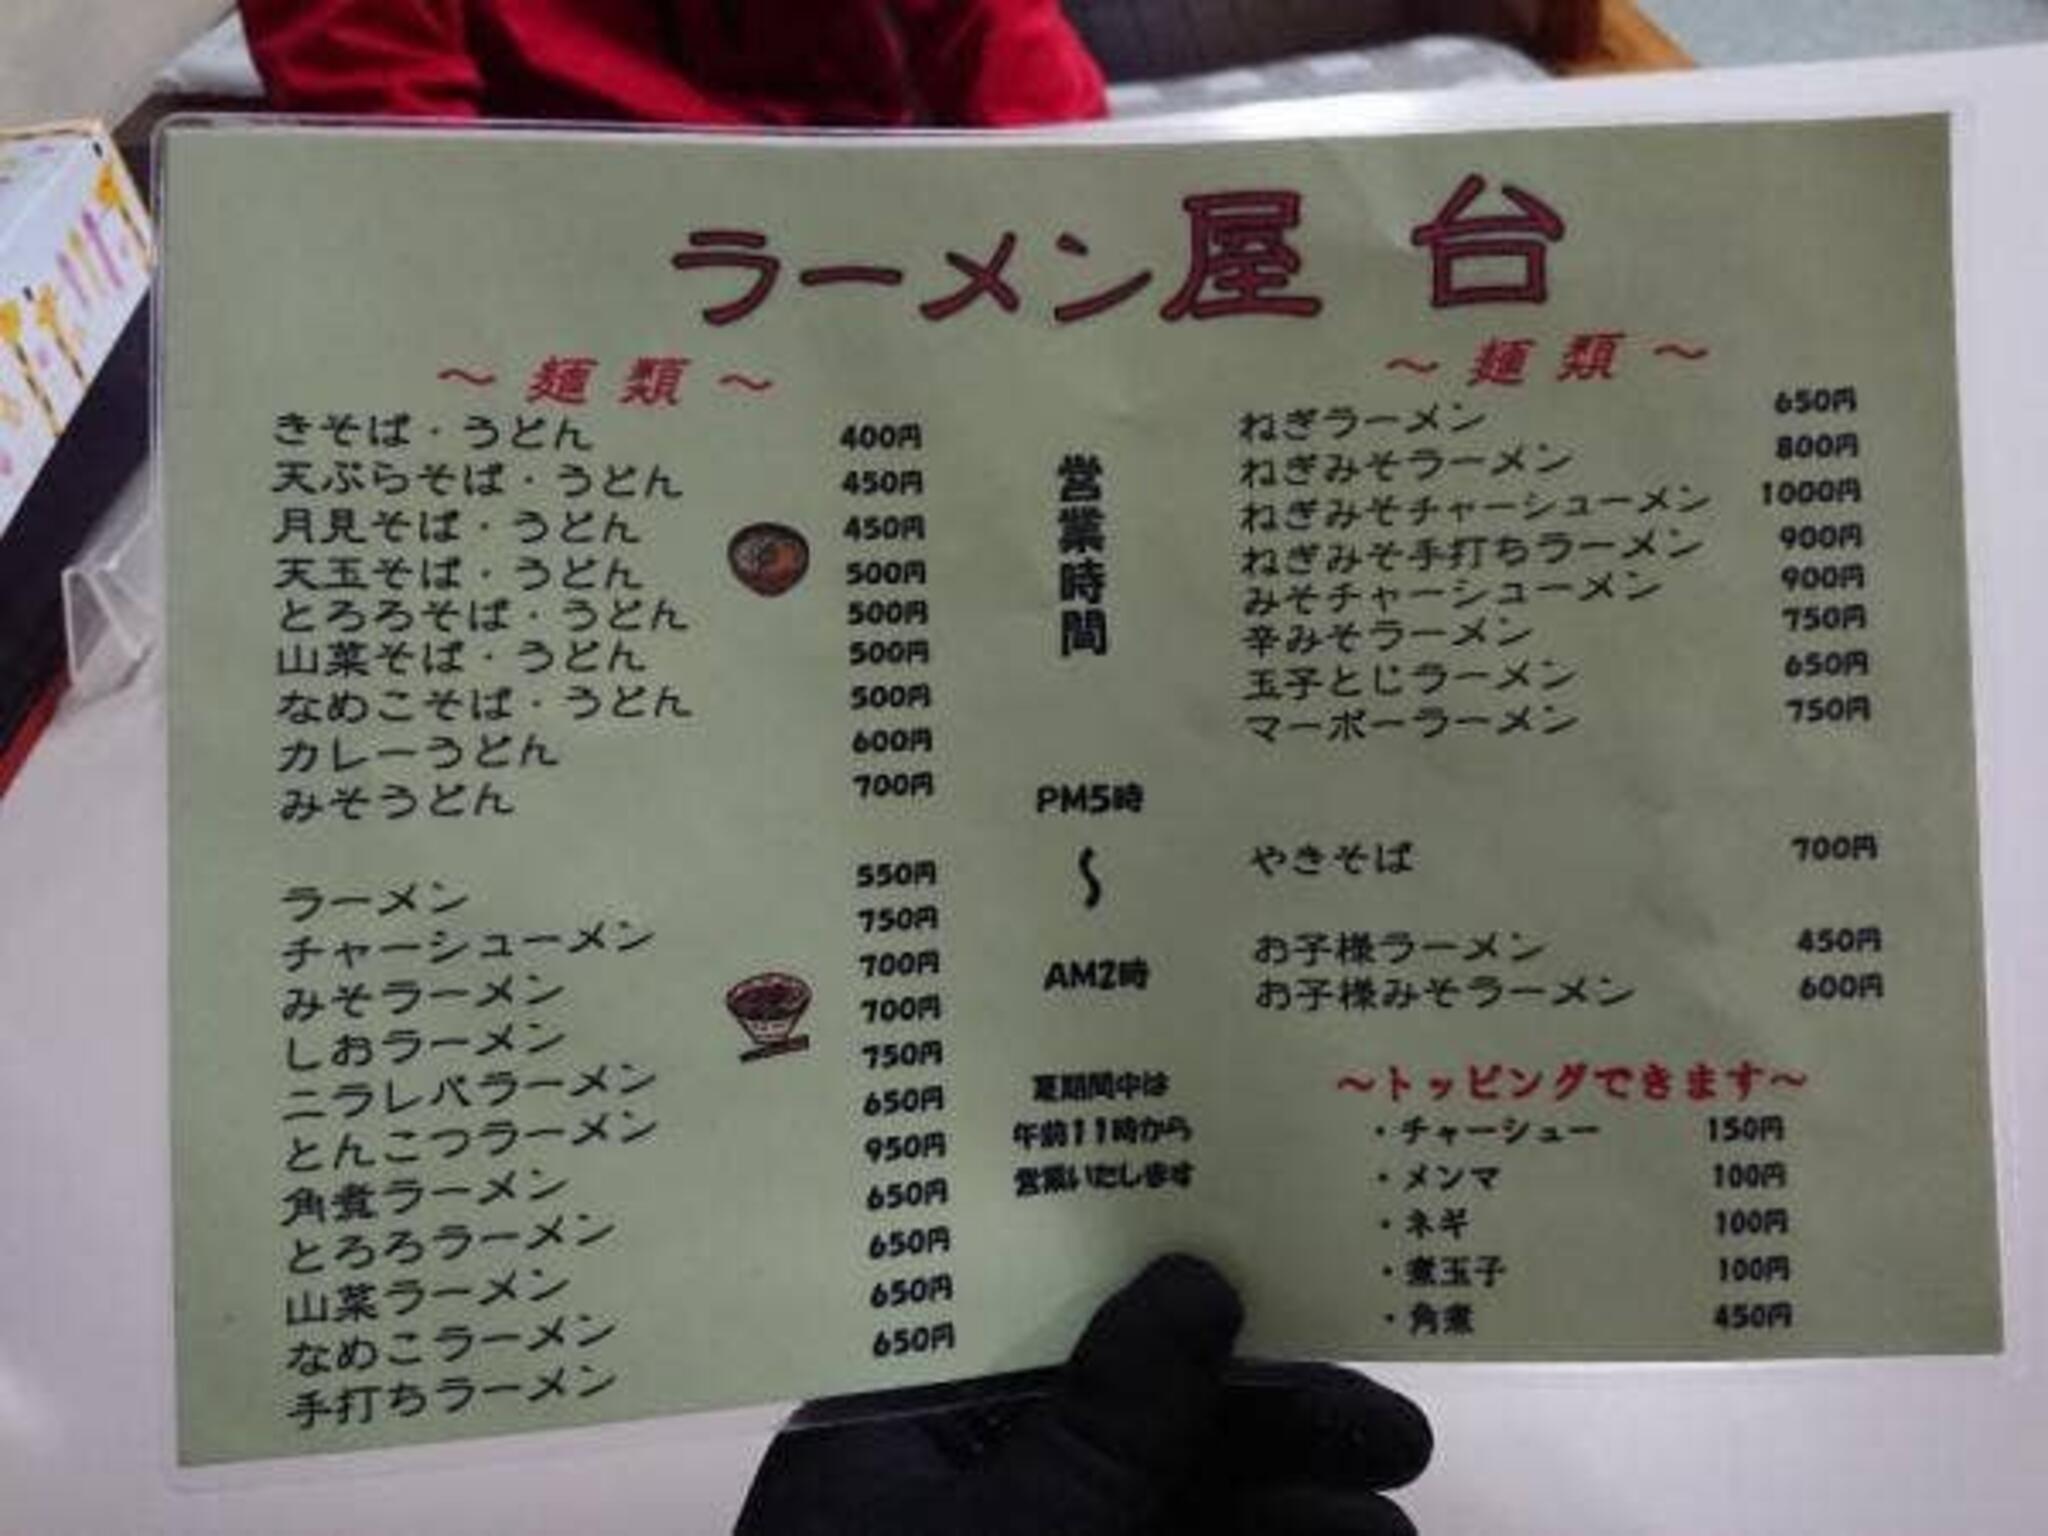 ラーメン屋台
～麺類～
きそば・うどん 400円
天ぷらそば・うどん 450円
月見そば・うどん 450円
天玉そば・うどん 500円
とろろそば・うどん 500円
山菜そば・うどん 500円
なめこそば・うどん 500円
カレーうどん 600円
みそうどん 700円
ラーメン 550円
チャーシューメン 750円
みそラーメン 700円
しおラーメン 700円
ニラレバラーメン 750円
とんこつラーメン 650円
角煮ラーメン 950円
とろろラーメン 650円
山菜ラーメン 650円
なめこラーメン 650円
手打ちラーメン 650円
営業時間
PM5時
～
AM2時
夏期間中は
午前11時から
営業いたします
～麺類～
ねぎラーメン 650円
ねぎみそラーメン 800円
ねぎみそチャーシューメン 1000円
ねぎみそ手打ちラーメン 900円
みそチャーシューメン 900円
辛みそラーメン 750円
玉子とじラーメン 650円
マーボーラーメン 750円
やきそば 700円
お子様ラーメン 450円
お子様みそラーメン 600円
～トッピングできます～
・チャーシュー 150円
・メンマ 100円
・ネギ 100円
・煮玉子 100円
・角煮 450円